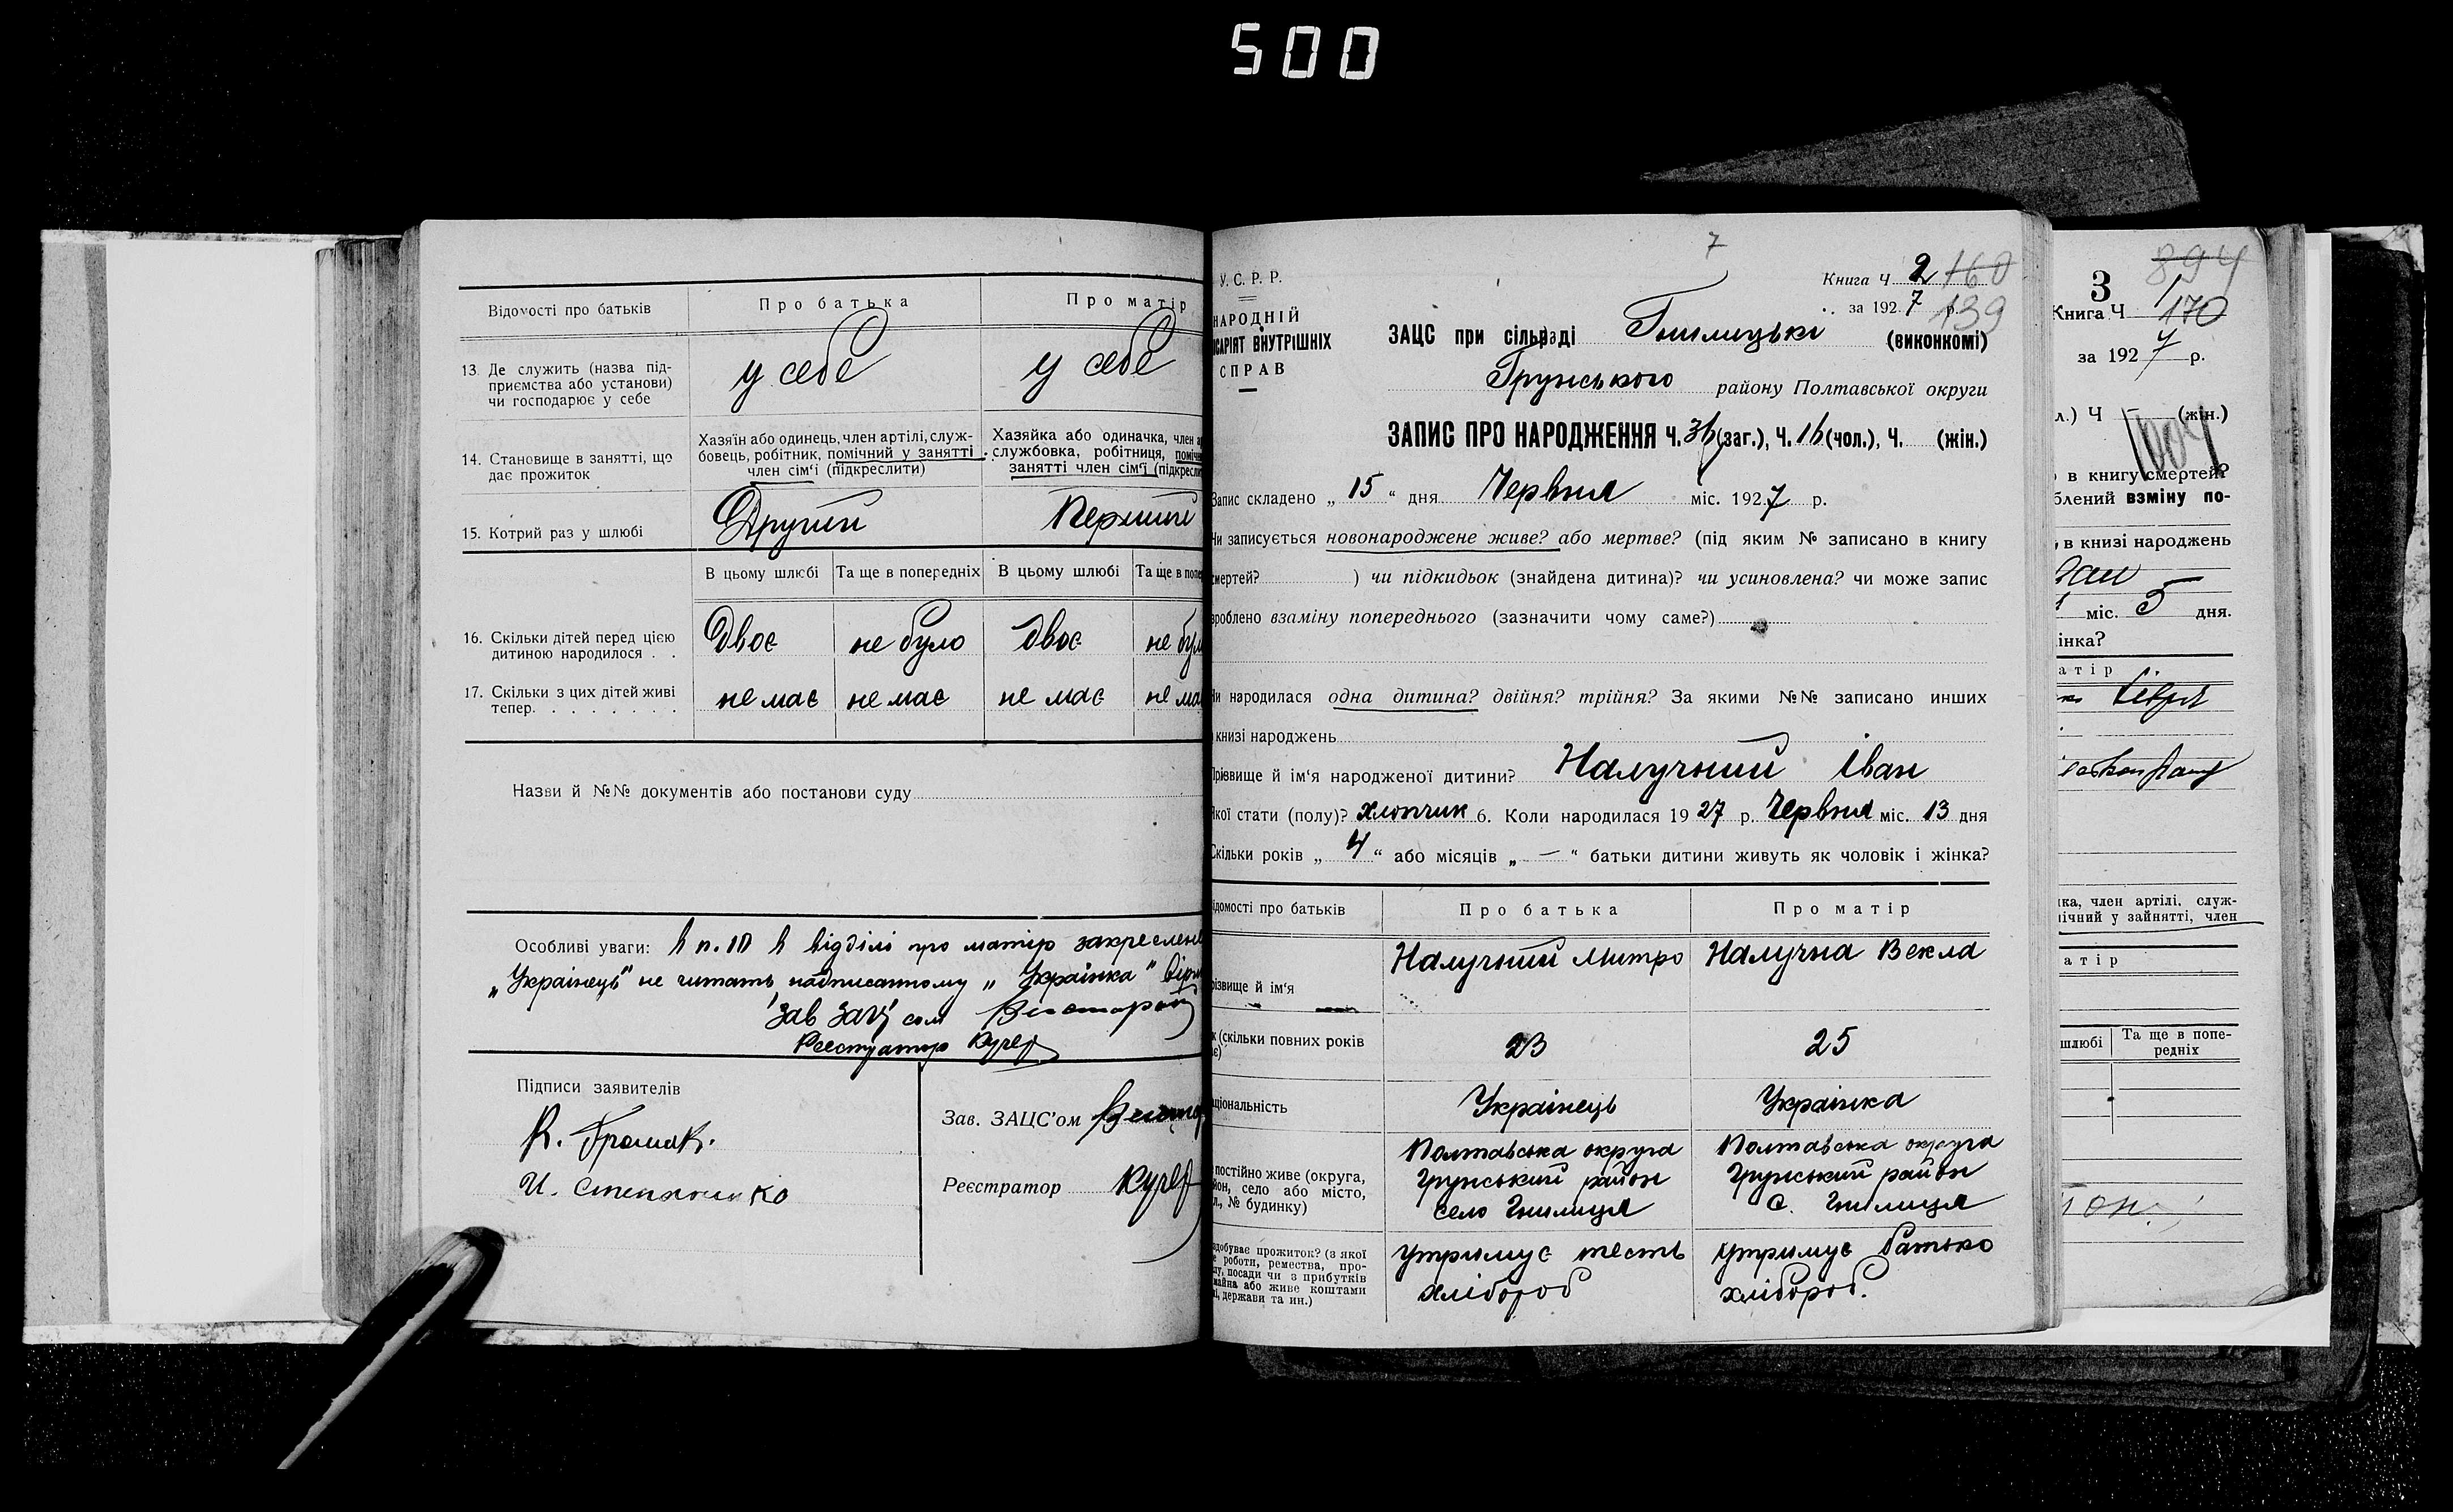 500
Відомості про батьків
Про батька
Про матір
13. Де служить (назва під-
приємства або установи)
чи господарює у себе
у себе
у себе
14. Становище в занятті, що
дає прожиток
Хазяїн або одинець, член артілі, служ-
бовець, робітник, помічний у занятті
член сім'ї (підкреслити)
Хазяйка або одиначка, член а
службовка, робітниця, поміч
занятті член сім'ї (підкресли
15. Котрий раз у шлюбі
Другий
Перший
В цьому шлюбі
Та ще в попередніх
В цьому шлюбі
Та ще в попе
16. Скільки дітей перед цією
дитиною народилося . .
Двоє
не було
двоє
не бул
17. Скільки з цих дітей живі
тепер. . . . . . . .
не має
не має
не має
не ма
Назви й №№ документів або постанови суду
Особливі уваги: в п. 10 в відділі про матір закреслене
„Українець" не читать, надписанному „Українка" вірн
Зав ЗАЦ сом
Реєстратор Кучер
Підписи заявителів
К. Громак.
И. Степаненко
Зав. ЗАЦС'ом
Реєстратор Кучер
7
У. С. Р. Р.
НАРОДНІЙ
ІСАРІЯТ ВНУТРІШНІХ
СПРАВ
Книга Ч 2 160
за 1927 р. 139
ЗАЦС при сільраді Гнилицькі (виконкомі)
Грунського району Полтавської округи
ЗАПИС ПРО НАРОДЖЕННЯ Ч. 36 (заг.), Ч. 16 (чол.), Ч. (жін.)
Запис складено „ 15 " дня Червня міс. 1927 р.
Чи записується новонароджене живе? або мертве? (під яким № записано в книгу
смертей? ) чи підкидьок (знайдена дитина)? чи усиновлена? чи може запис
зроблено взаміну попереднього (зазначити чому саме?)
Чи народилася одна дитина? двійня? трійня? За якими №№ записано инших
книзі народжень
Прізвище й ім'я народженої дитини? Налучний Іван
Якої стати (полу)? хлопчик 6. Коли народилася 1927 р. Червня міс. 13 дня
Скільки років „ 4 " або місяців „ — " батьки дитини живуть як чоловік і жінка?
ідомості про батьків
Про батька
Про матір
різвище й ім'я
Налучний Митро
Налучна Векла
к (скільки повних років
є)
23
25
ціональність
Українець
Українка
постійно живе (округа,
йон, село або місто,
л., № будинку)
Полтавська округа
Грунський район
село Гнилиця
Полтавська округа
Грунський район
с. Гнилиця
здобуває прожиток? (з якої
е роботи, ремества, про-
лу, посади чи з прибутків
майна або живе коштами
і, держави та ин.)
утримує тесть
хлібороб
утримує батько
хлібороб.
894
3
Книга Ч 1
170
за 1927 р.
л.) Ч — (жін.)
в книгу смертей?
блений взміну по-
, в книзі народжень
міс. 5 дня.
інка?
атір
ка, член артілі, служ-
ічний у зайнятті, член
атір
шлюбі
Та ще в попе-
редніх